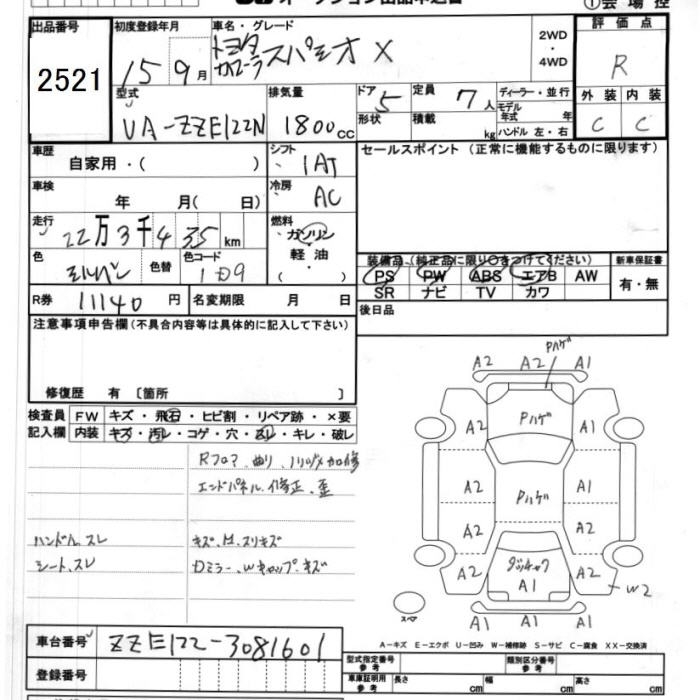 ①会場控
出品番号
2521
初度登録年月
15 9月
車名・グレード
トヨタ
カローラスパシオ X
2WD
・
4WD
評価点
R
外装 内装
C C
型式
UA-ZZE122N
排気量
1800cc
ドア 5
形状
定員 7人
積載 kg
ディーラー・並行
モデル年式 年
ハンドル 左・右
車歴
自家用・( )
シフト
IAT
車検
年 月( 日)
冷房
AC
走行
22万3千435km
燃料
ガソリン
・
軽油
色
色替
色コード
1D9
R券 11140円
名変期限 月 日
セールスポイント(正常に機能するものに限ります)
装備品(純正品に限り○をつけてください)
PS PW ABS エアB AW
SR ナビ TV カワ
新車保証書
有・無
後日品
注意事項申告欄(不具合内容等は具体的に記入して下さい)
修復歴 有〔箇所 〕
検査員記入欄
FW キズ・飛石・ヒビ割・リペア跡・×要
内装 キズ・汚レ・コゲ・穴・スレ・キレ・破レ
Rフロア、曲リ
エンドパネル、修正、歪
ハンドル、スレ
シート、スレ
キズ、凹、スリキズ
ドミラー、Wキャップ、キズ
Pハゲ
A2 A2 A1
A2 Pハゲ A1
A2 Pハゲ A1
A2 A1
A2 A1 A2
W2
A1 A1 A1
スペア
A-キズ E-エクボ U-凹み W-補修跡 S-サビ C-腐食 XX-交換済
車台番号
ZZE122-3081601
登録番号
型式指定番号 参考
類別区分番号 参考
車庫証明用 参考
長さ cm
幅 cm
高さ cm